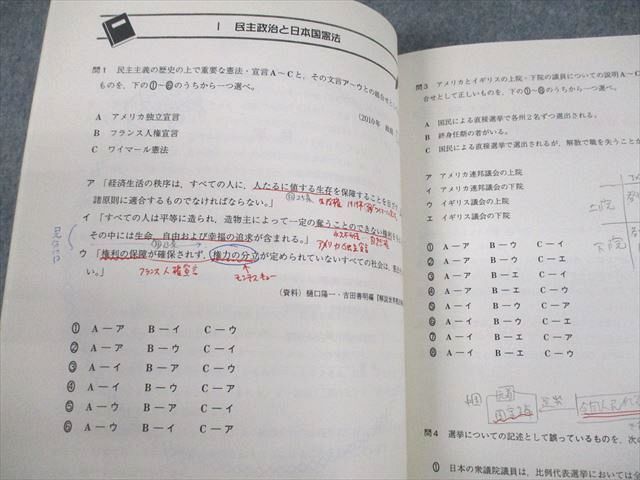 Ⅰ 民主政治と日本国憲法
問1 民主主義の歴史の上で重要な憲法・宣言A～Cと、その文言ア～ウとの組合せとし
ものを、下の①～⑥のうちから一つ選べ。
(2010年
A アメリカ独立宣言
B フランス人権宣言
C ワイマール憲法
ア 「経済生活の秩序は、すべての人に、人たるに値する生存を保障することを目ざ
諸原則に適合するものでなければならない。
生存権
イ 「すべての人は平等に造られ、造物主によって一定の奪うことのできない権利を
その中には生命、自由および幸福の追求が含まれる。」
アメリカ独立宣言
ウ 「権利の保障が確保されず、権力の分立が定められていないすべての社会は、憲法
い。」
フランス人権宣言
モンテスキュー
(資料) 樋口陽一・吉田善明編『解説世界憲法
① A－ア B－イ C－ウ
② A－ア B－ウ C－イ
③ A－イ B－ア C－ウ
④ A－イ B－ウ C－ア
⑤ A－ウ B－ア C－イ
⑥ A－ウ B－イ C－ア
問3 アメリカとイギリスの上院・下院の議員についての説明A～
合せとして正しいものを、下の①～⑧のうちから一つ選べ。
A 国民による直接選挙で各州2名ずつ選出される。
B 終身任期の者がいる。
C 国民による直接選挙で選出されるが、解散で職を失うことか
ア アメリカ連邦議会の上院
イ アメリカ連邦議会の下院
ウ イギリス議会の上院
エ イギリス議会の下院
上院
下院
① A－ア B－イ C－ウ
② A－ア B－イ C－エ
③ A－ア B－ウ C－イ
④ A－ア B－ウ C－エ
⑤ A－イ B－ア C－ウ
⑥ A－イ B－ア C－エ
⑦ A－イ B－ウ C－エ
⑧ A－イ B－エ C－ウ
問4 選挙についての記述として誤っているものを、次の
① 日本の衆議院議員は、比例代表選挙においては全